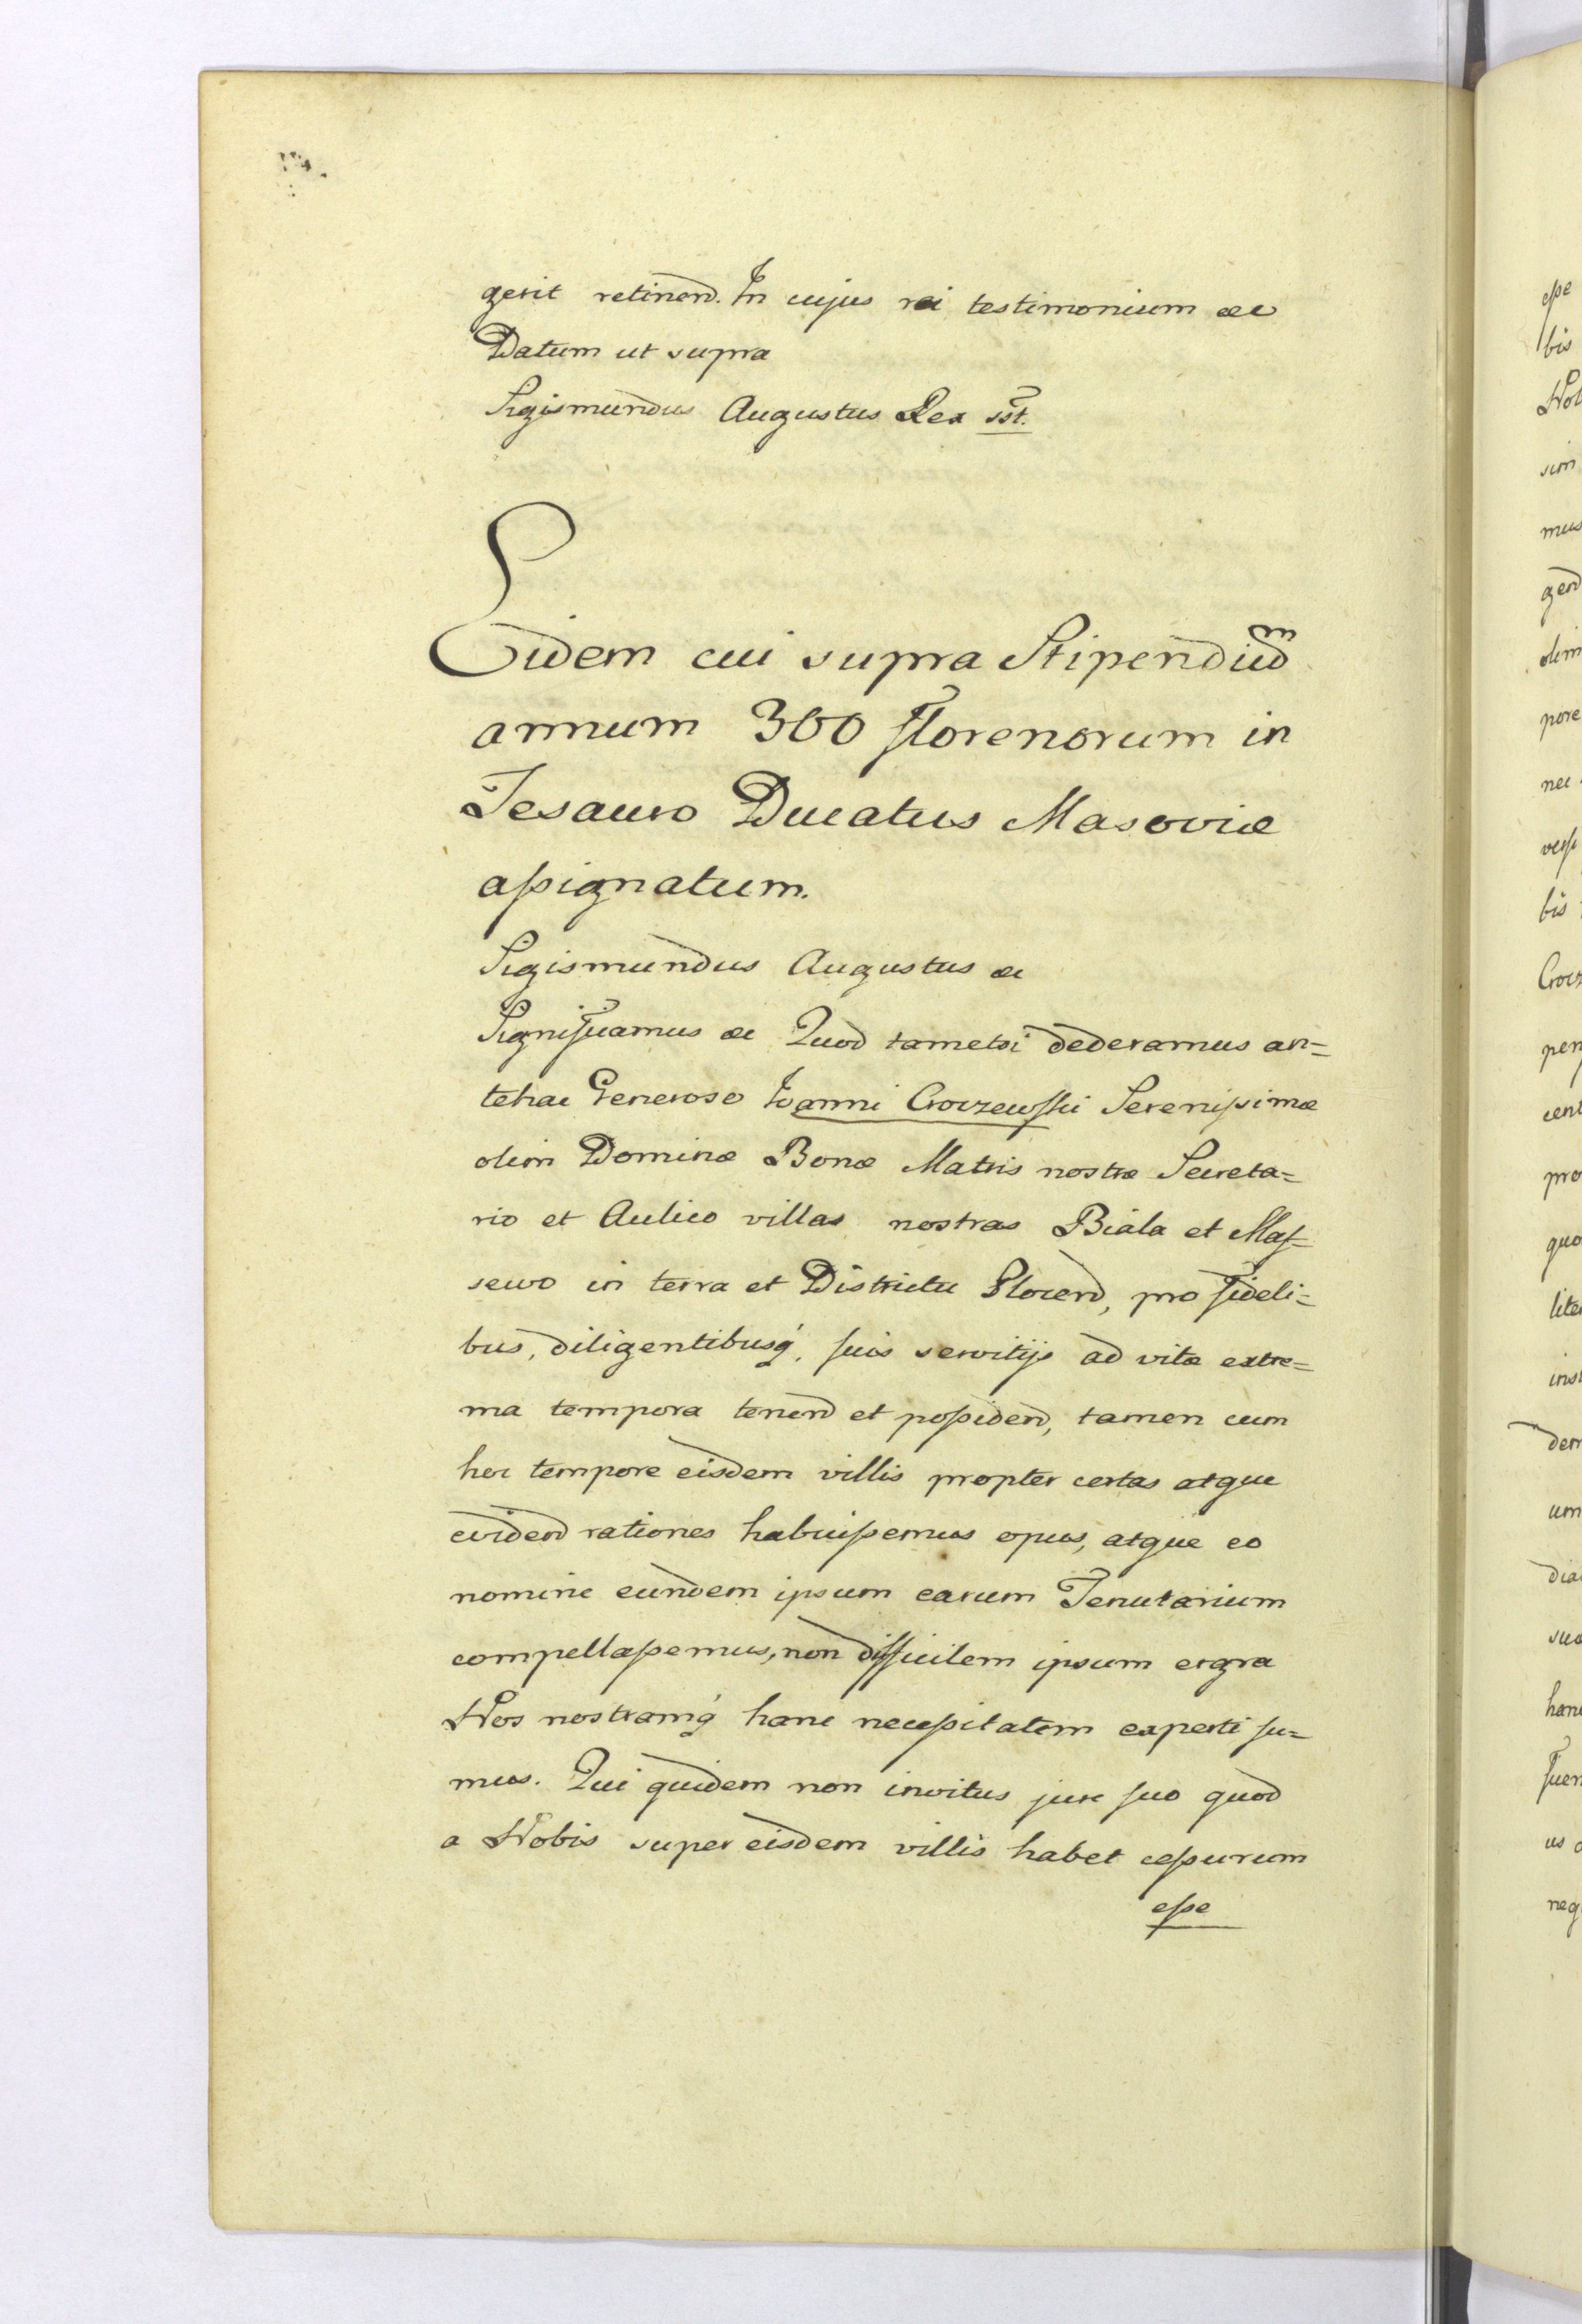 gerit retinend. In cujus rei testimonium &c
Datum ut supra
Sigismundus Augustus Rex sst.
Eidem cui supra Stipendium
annum 300 florenorum in
Tesauro Ducatus Masoviæ
aſsignatum.
Sigismundus Augustus &c
Significamus &c Quod tametsi dederamus an=
tehac Generoso Ioanni Croczewſki Sereniſsimæ
olim Dominæ Bonæ Matris nostræ Secreta=
rio et Aulico villas nostras Biala et Maſ=
sewo in terra et Districtu Plocend, pro fideli=
bus, diligentibusq́, ſuis servitijs ad vitæ extre=
ma tempora tenend et poſsidend, tamen cum
hoc tempore eisdem villis propter certas atque
evidend rationes habuiſsemus opus, atque eo
nomine eundem ipsum earum Tenutarium
compellaſsemus, non difficilem ipsum ergra
Nos nostramq́ hanc neceſsitatem experti ſu=
mus. Qui quidem non invitus jure ſuo quod
a Nobis super eisdem villis habet ceſsurum
eſse
eſse
bis
sim
mus
gend
olim
pore
nec
bis
cent
pro
quo
inst
dem
um
hanc
us
neq